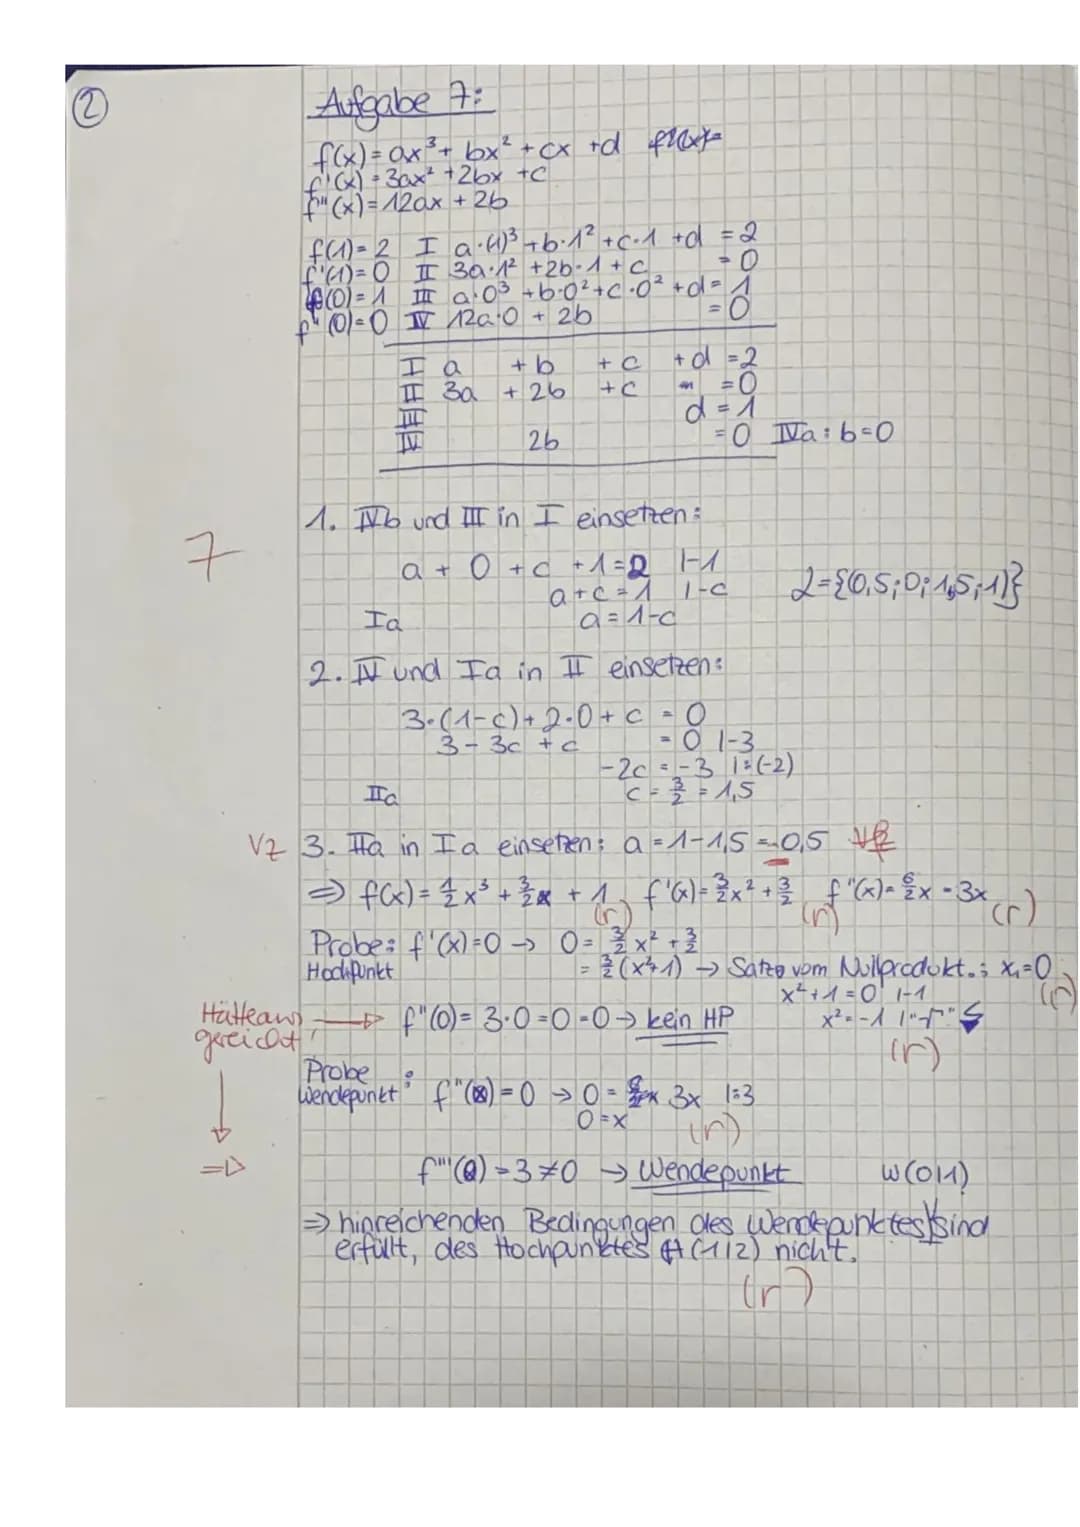 ②
Aufgabe 7:
f(x) = ax³ + bx² + cx + d
f'(x) = 3ax² + 2bx + c
f''(x) = 12ax + 2b
f(1) = 2 I a·(1)³ + b·1² + c·1 + d = 2
f'(1) = 0 II 3a·1² + 2b·1 + c = 0
f(0) = 1 III a·0³ + b·0² + c·0² + d = 1
f''(0) = 0 IV 12a·0 + 2b = 0
I a + b + c + d = 2
II 3a + 2b + c = 0
III d = 1
IV 2b = 0 IVa: b=0
1. IVb und III in I einsetzen:
7
a + 0 + c + 1 = 2 |-1
a + c = 1 |-c
L={(0,5;0;1,5;1)}
Ia a = 1-c
2. IV und Ia in II einsetzen:
3·(1-c) + 2·0 + c = 0
3 - 3c + c = 0 |-3
-2c = -3 |:(-2)
IIa c = 3/2 = 1,5
VZ 3. IIa in Ia einsetzen: a = 1-1,5 = 0,5
⇒ f(x) = 1/2x³ + 3/2x + 1 f'(x) = 3/2x² + 3/2 f''(x) = 6/2x = 3x
(r) (r) (r)
Probe: f'(x)=0 → 0 = 3/2x² + 3/2
Hochpunkt = 3/2(x²+1) → Satz vom Nullprodukt.: x₁=0
x²+1=0 |-1 (r)
x² = -1 |"√" ↯
(r)
Hätte aus
gereicht → f''(0) = 3·0 = 0 = 0 → kein HP
Probe
Wendepunkt: f''(x) = 0 → 0 = 3x |:3
0 = x (r)
⇒ f'''(0) = 3 ≠ 0 → Wendepunkt W(0|1)
⇒ hinreichenden Bedingungen des Wendepunktes sind
erfüllt, des Hochpunktes H(1|2) nicht.
(r)